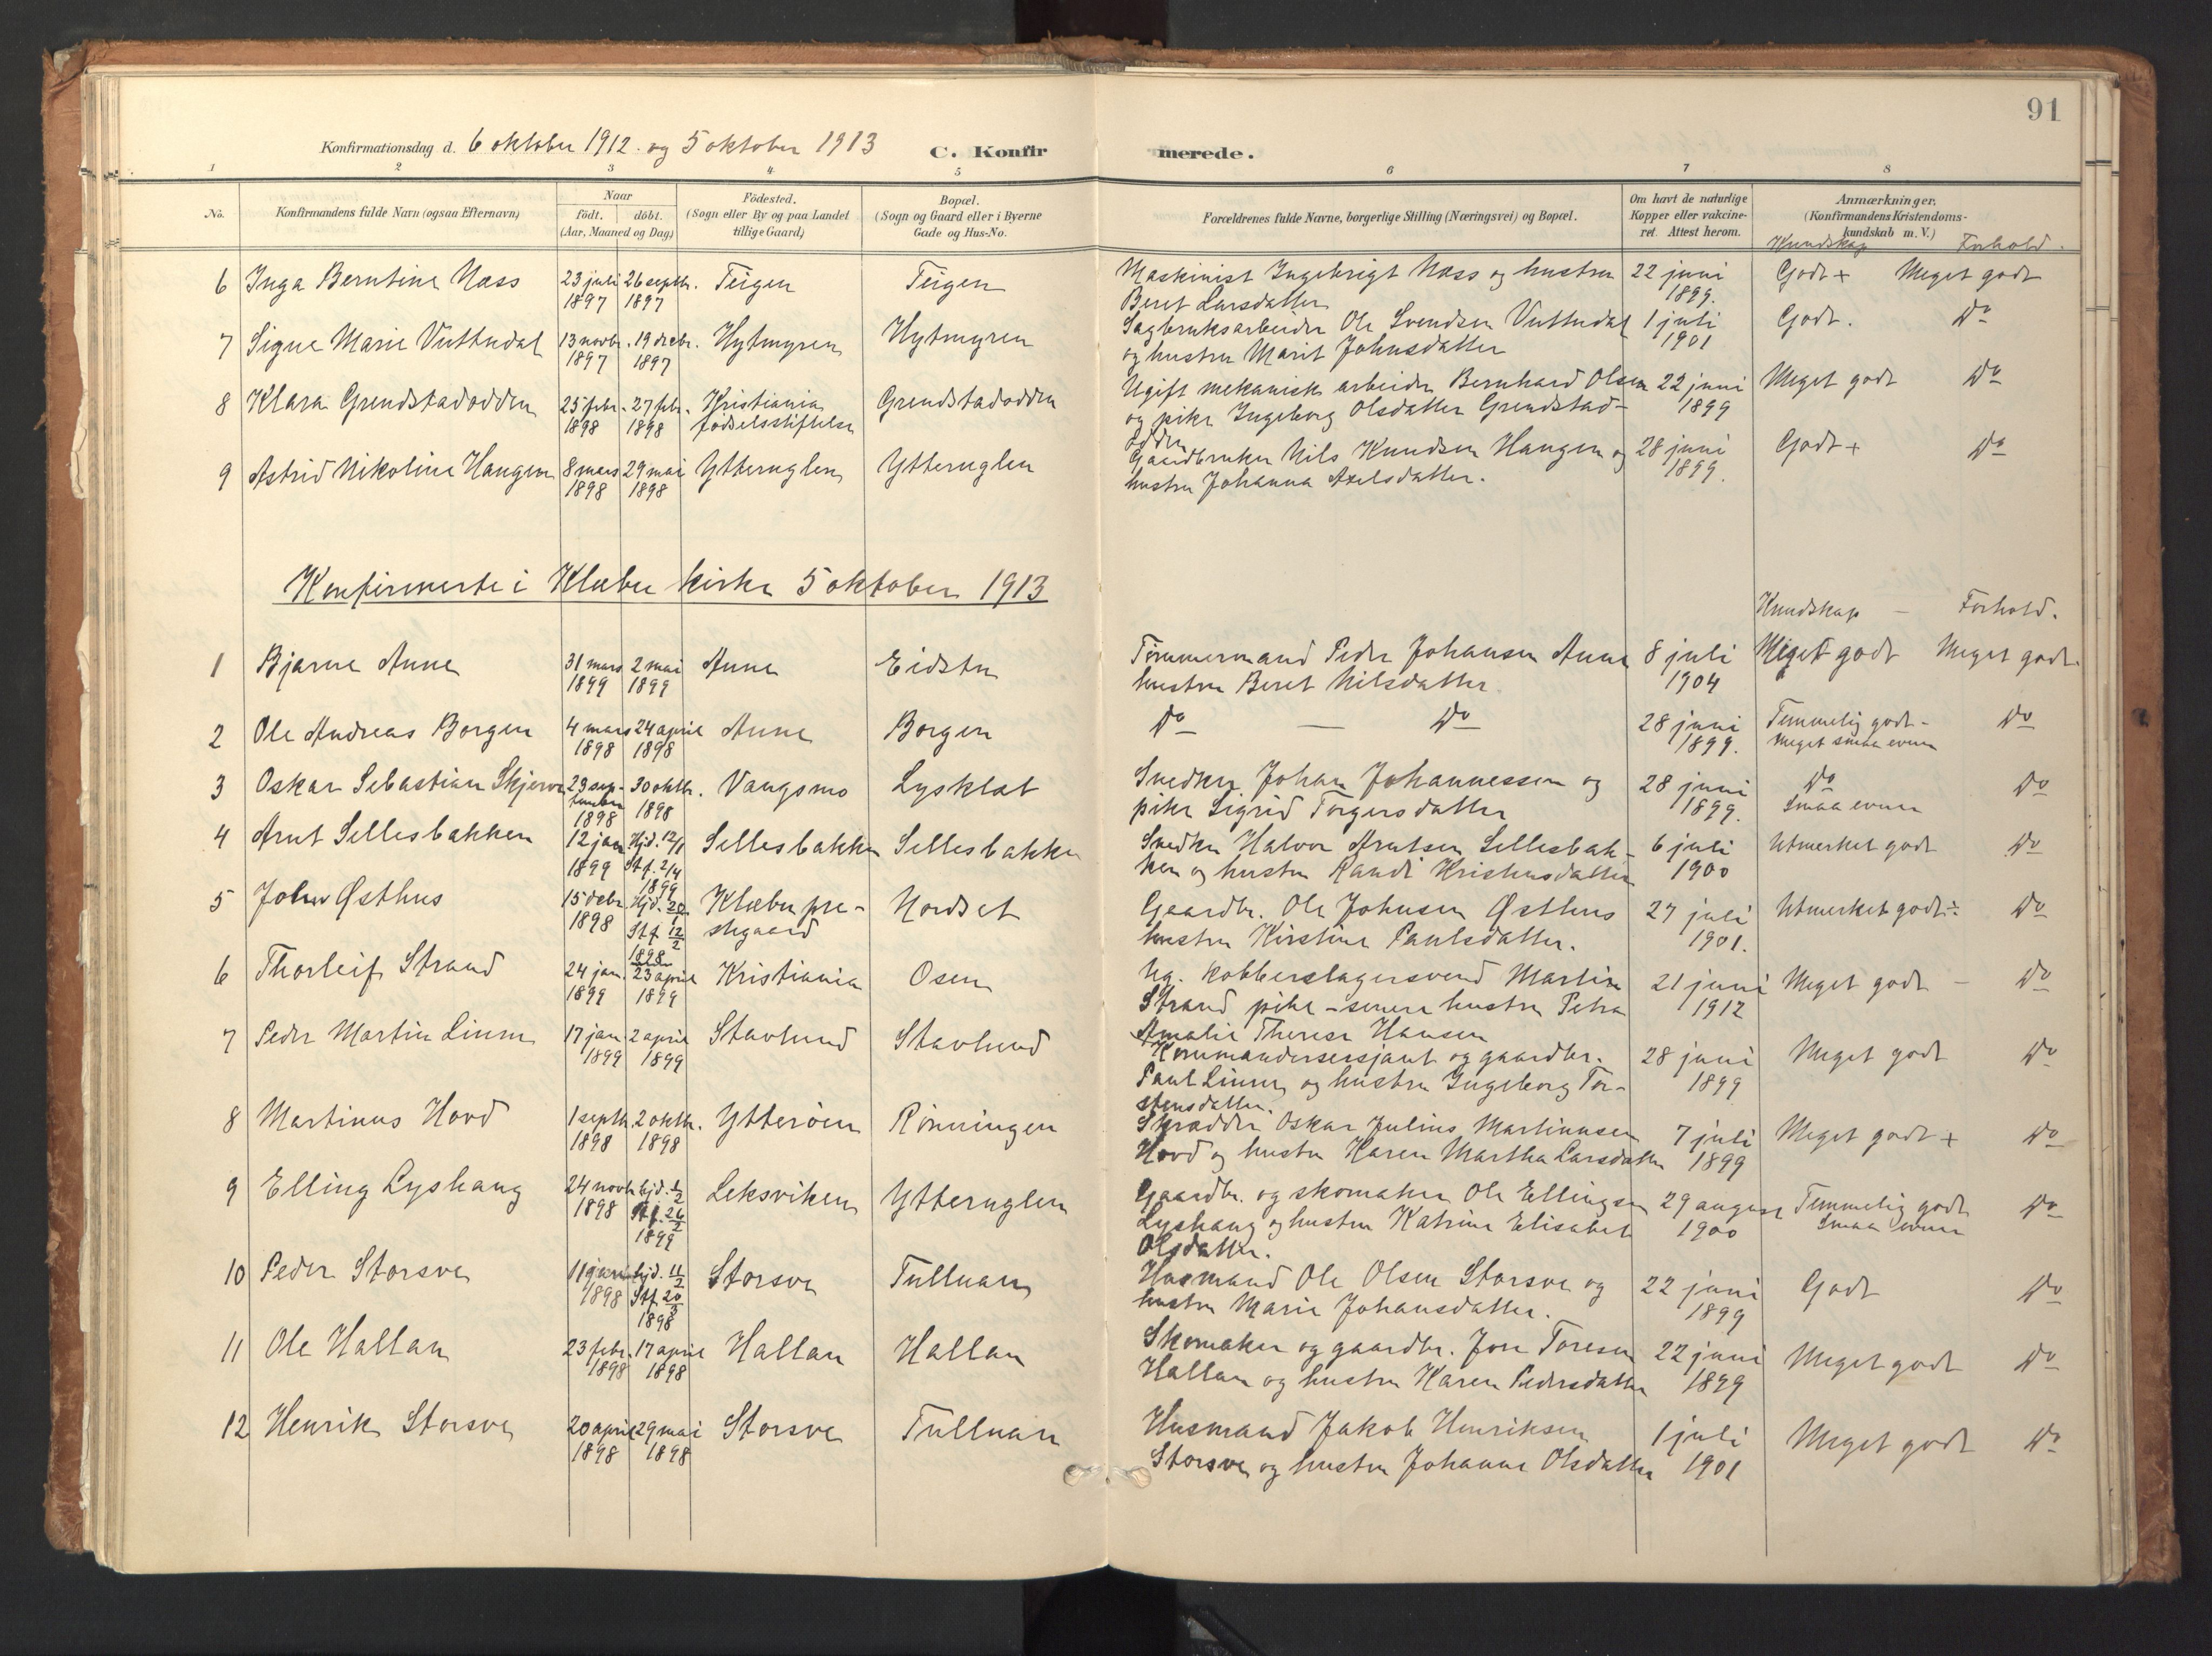 91
Konfirmationsdag d. 6 oktober 1912 og 5 oktober 1913 C. Konfirmerede.
1 2 3 4 5 6 7 8
No. Konfirmandens fulde Navn (ogsaa Efternavn) Naar født. døbt. (Aar, Maaned og Dag) Födested. (Sogn eller By og paa Landet tillige Gaard) Bopæl. (Sogn og Gaard eller i Byerne Gade og Hus-No. Forældrenes fulde Navne, borgerlige Stilling (Næringsvei) og Bopæl. Om havt de naturlige Kopper eller vakcineret. Attest herom. Anmærkninger. (Konfirmandens Kristendomskundskab m. V.)
Kundskap Forhold.
6 Inga Berntine Næss 23 juli 26 septb. Teigen Teigen Maskinist Ingebrigt Næss og hustru 22 juni Godt + Meget godt
1897 1897 Beret Larsdatter 1899.
7 Signe Marie Vuttudal 13 novbr. 19 decbr. Hytmyren Hytmyren Sagbruksarbeider Ole Svendsen Vuttudal 1 juli Godt. Do
1897 1897 og hustru Marit Johnsdatter 1901
8 Klara Grendstadodden 25 febr. 27 febr. Kristiania Grendstadodden Ugift mekanisk arbeider Bernhard Olsen 22 juni Meget godt Do
1898 1898 fødselsstiftelse og pike Ingeborg Olsdatter Grendstad- 1899
odden
9 Astrid Nikoline Haugen 8 mars 29 mai Ytteruglen Ytteruglen Gaardbruker Nils Knudsen Haugen og 28 juni Godt + Do
1898 1898 hustru Johanna Axelsdatter. 1899.
Konfirmerte i Klæbu kirke 5 oktober 1913
Kundskap – Forhold.
1 Bjarne Aune 31 mars 2 mai Aune Eidstu Tømmermand Peder Johansen Aune 8 juli Meget godt Meget godt.
1899 1899 hustru Beret Nilsdatter 1904
2 Ole Andreas Borgen 4 mars 24 april Aune Borgen Do — Do 28 juni Temmelig godt - Do
1898 1898 1899. meget smaa evner
3 Oskar Sebastian Skjerve 29 sep- 30 oktb. Vangsmo Lysklæt Snedker Johan Johannessen og 28 juni Do Do
tember 1898 1898 pike Sigrid Torgersdatter 1899. Smaa evner
4 Arnt Sellesbakken 12 jan Hjd. 12/1 Sellesbakken Sellesbakken Snedker Halvor Arntsen Sellesbak- 6 juli Utmerket godt Do
1899 Stf. 2/4 1899 ken og hustru Randi Kristensdatter 1900
5 John Østhus 15 debr. Hjd. 20/1 Klæbu pre- Nordset Gaardbr. Ole Johnsen Østhus 27 juli Utmerket godt ÷ Do
1898 Stf 12/2 1898 stegaard hustru Kirstine Paulsdatter. 1901.
6 Thorleif Strand 24 jan. 23 april Kristiania Osen Ug. kobberslagersvend Martin 21 juni Meget godt – Do
1899 1899 Strand pike – senere hustru Petra 1912
Amalie Therese Hansen
7 Peder Martin Linum 17 jan 2 april Stavlund Stavlund Kommandersersjant og gaardbr. 28 juni Meget godt Do
1899 1899 Paul Linum og hustru Ingeborg Tor- 1899
stensdatter.
8 Martinus Hovd 1 septb. 2 oktb. Ytterøen Rønningen Skrædder Oskar Julius Martinusen 7 juli Meget godt + Do
1898 1898 Hovd og hustru Karen Martha Larsdatter 1899
9 Elling Lyshaug 24 novb hjd. 1/2 Leksviken Ytteruglen Gaardbr. og skomaker Ole Ellingsen 29 august Temmelig godt Do
1898 Stf. 26/2 1899 Lyshaug og hustru Katrine Elisabet 1900 Smaa evner
Olsdatter.
10 Peder Storsve 11 jan hjd. 11/2 Storsve Tulluan Husmand Ole Olsen Storsve og 22 juni Godt Do
1898 Stf 20/3 1898 hustru Marie Johansdatter. 1899
11 Ole Hallan 23 febr. 17 april Hallan Hallan Skomaker og gaardbr. Jon Toresen 22 juni Meget godt Do
1898 1898 Hallan og hustru Karen Pedersdatter 1899
12 Henrik Storsve 20 april 29 mai Storsve Tulluan Husmand Jakob Henriksen 1 juli Meget godt Do
1898 1898 Storsve og hustru Johanne Olsdatter 1901